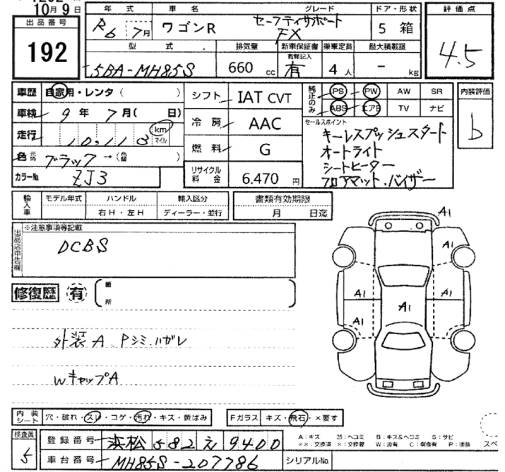 10月9日
出品番号
192
年式 車名 グレード ドア・形状 評価点
R6 7月 ワゴンR セーフティサポート 5 箱
FX
4.5
型式 排気量 新車保証書 乗車定員 最大積載量
5BA-MH85S 660cc 有 4人 - kg
車歴 自家用・レンタ
車検 9年7月( 日)
走行 km マイル
色 ブラック→
カラーNo. ZJ3
シフト IAT CVT
冷房 AAC
燃料 G
リサイクル料金 6.470円
純正のみ PS PW AW SR
ABS エアB TV ナビ
内装評価
b
セールスポイント
キーレスプッシュスタート
オートライト
シートヒーター
フロアマット、バイザー
輸入車 モデル年式 ハンドル 輸入区分 書類有効期限
右H・左H ディーラー・並行 月 日迄
※注意事項等記載
DCBS
修復歴 有 箇所
外装A Pシミ、ハガレ
WキャップA
A1
A1
A1 A1 A1
A1
内装シート 穴・破れ・スレ・コゲ・汚れ・キズ・黄ばみ Fガラス キズ・飛石・×要す
検査員 5
登録番号 浜松 582 え 9400
車台番号 MH85S-207786 シリアルNo.